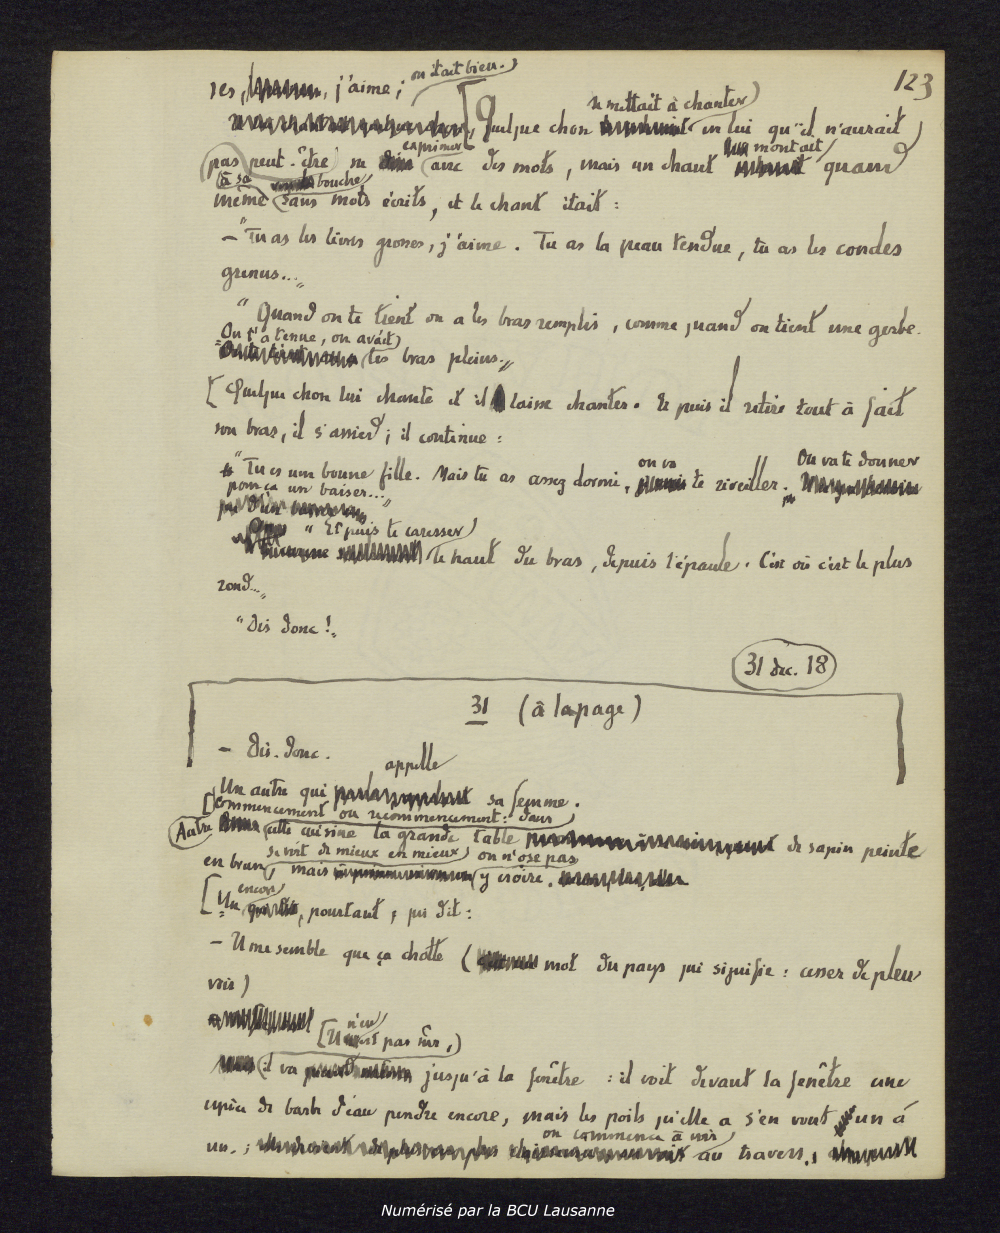 123
res, j'aime ; on était bien.
[Quelque chose se mettait à chanter en lui qu'il n'aurait
pas peut-être su exprimer avec des mots, mais un chant lui montait quand
à sa bouche
même sans mots écrits, et le chant était :
— "Tu as les lèvres grosses, j'aime. Tu as la peau tendue, tu as les coudes
grenus..."
"Quand on te tient on a les bras remplis, comme quand on tient une gerbe.
On t'a tenue, on avait
les bras pleins."
[Quelque chose lui chante et il laisse chanter. Et puis il retire tout à fait
son bras, il s'assied ; il continue :
"Tu es une bonne fille. Mais tu as assez dormi, on va te réveiller. On va te donner
pour ça un baiser..."
"Et puis te caresser
le haut du bras, depuis l'épaule. C'est où c'est le plus
rond..."
"Dis donc !"
31 déc. 18
31 (à la page)
— Dis-donc.
Un autre qui appelle sa femme.
[Commencement ou recommencement : dans
Autre cette cuisine la grande table de sapin peinte
se voit de mieux en mieux, on n'ose pas
en brun, mais y croire.
[Un encore, pourtant, qui dit :
— Il me semble que ça chotte ( mot du pays qui signifie : cesser de pleu
voir)
[Il n'en est pas sûr,)
il va jusqu'à la fenêtre : il voit devant la fenêtre une
espèce de barbe d'eau pendre encore, mais les poils qu'elle a s'en vont un à
on commence à voir
un. ; au travers.
Numérisé par la BCU Lausanne